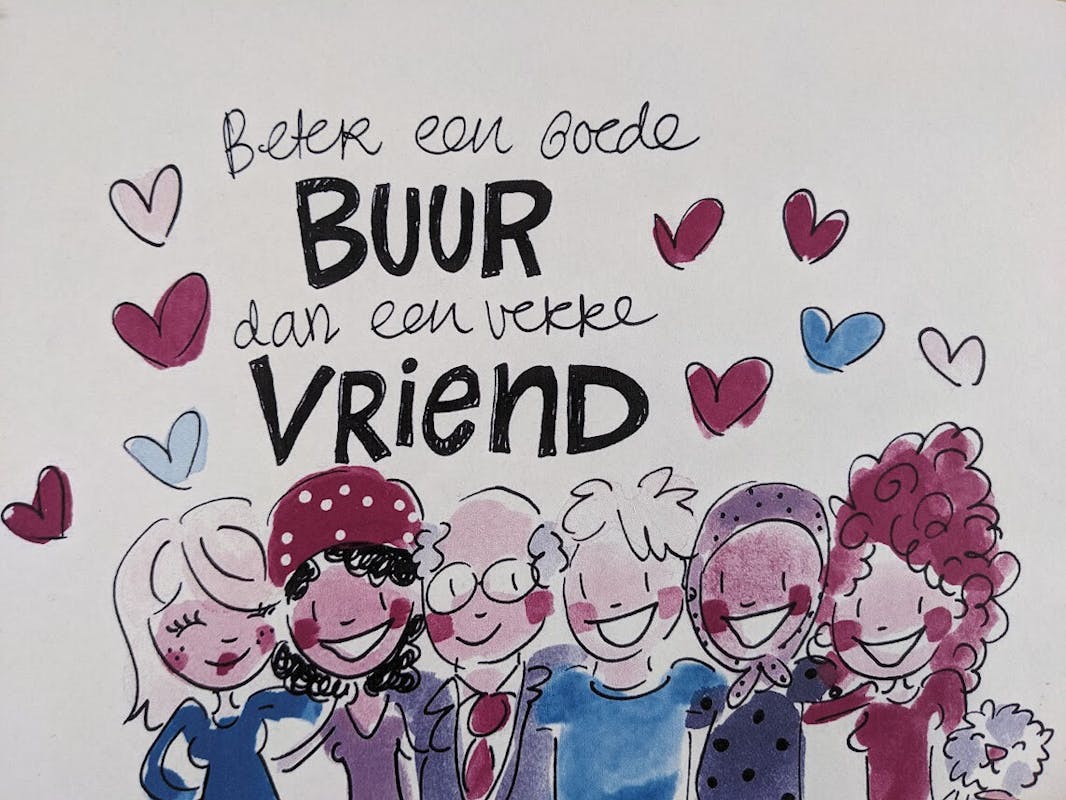 Beter een goede
BUUR
dan een verre
VRIEND